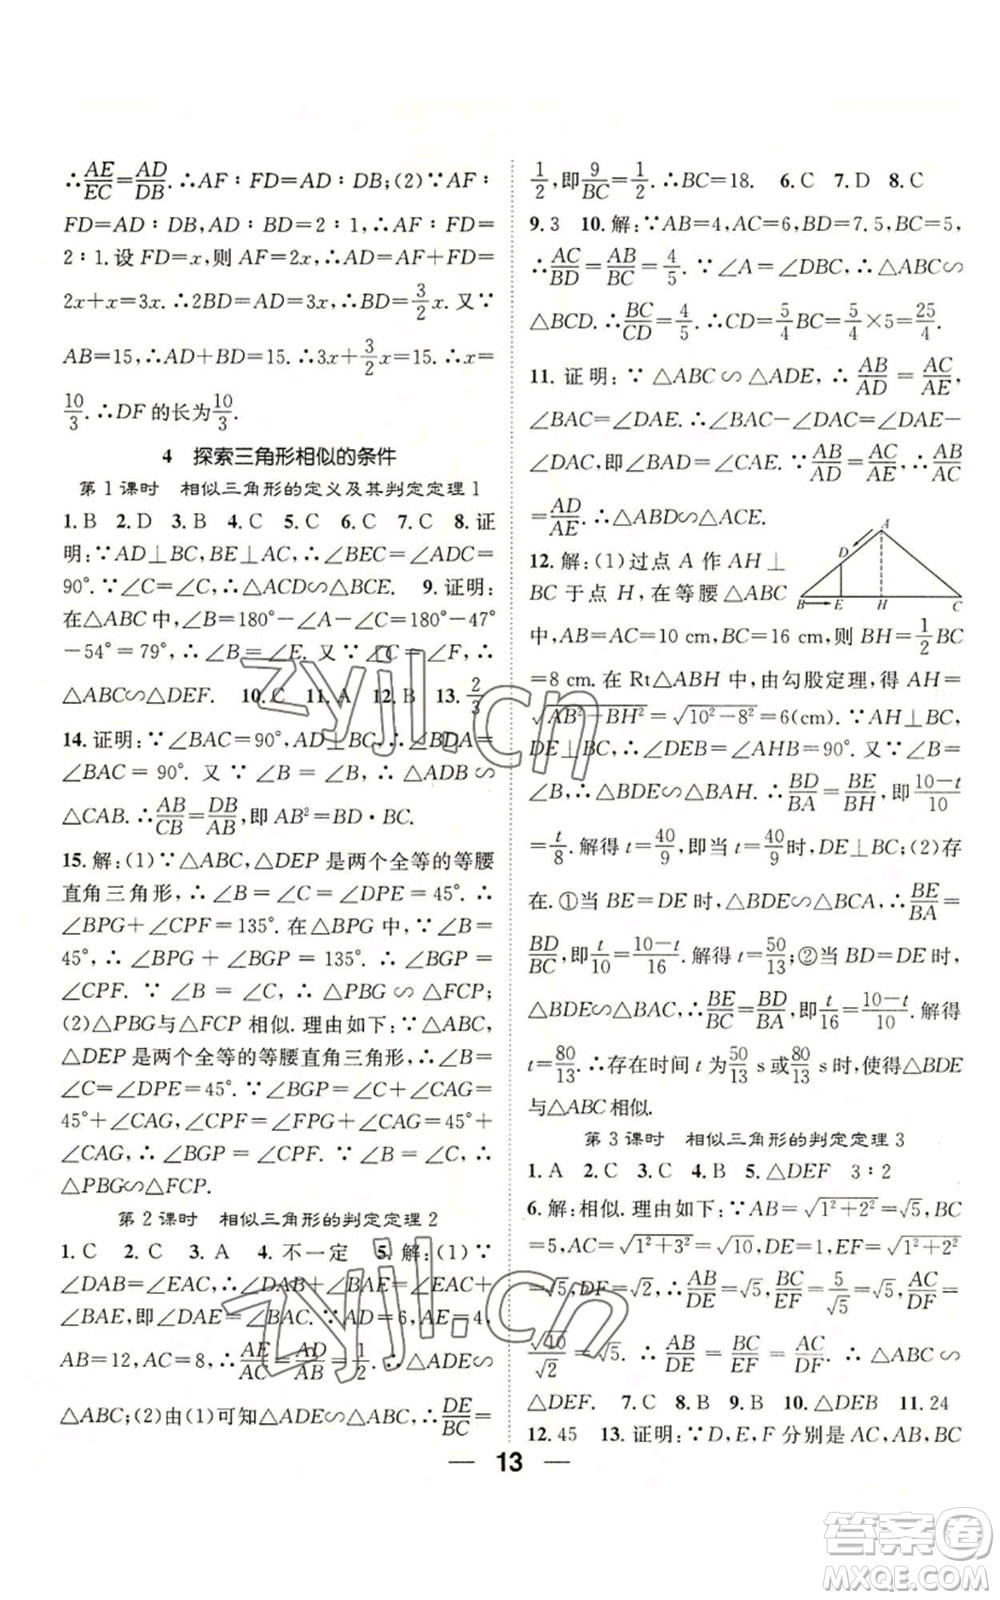 ∴AE/EC=AD/DB.∴AF∶FD=AD∶DB;(2)∵AF∶
FD=AD∶DB,AD∶BD=2∶1.∴AF∶FD=
2∶1.设FD=x,则AF=2x,∴AD=AF+FD=
2x+x=3x.∴2BD=AD=3x.∴BD=3/2x.又∵
AB=15,∴AD+BD=15.∴3x+3/2x=15.∴x=
10/3.∴DF的长为10/3.
4 探索三角形相似的条件
第1课时 相似三角形的定义及其判定定理1
1.B 2.D 3.B 4.C 5.C 6.C 7.C 8.证
明:∵AD⊥BC,BE⊥AC,∴∠BEC=∠ADC=
90°.∵∠C=∠C,∴△ACD∽△BCE. 9.证明:
在△ABC中,∠B=180°-∠A-∠C=180°-47°
-54°=79°,∴∠B=∠E.又∵∠C=∠F,∴
△ABC∽△DEF. 10.C 11.A 12.B 13.2/3
14.证明:∵∠BAC=90°,AD⊥BC,∴∠BDA=
∠BAC=90°.又∵∠B=∠B,∴△ABD∽
△CAB.∴AB/CB=DB/AB,即AB²=BD·BC.
15.解:(1)∵△ABC,△DEP是两个全等的等腰
直角三角形,∴∠B=∠C=∠DPE=45°.∴
∠BPG+∠CPF=135°.在△BPG中,∵∠B=
45°,∴∠BPG+∠BGP=135°.∴∠BGP=
∠CPF.∵∠B=∠C,∴△PBG∽△FCP;
(2)△PBG与△FCP相似.理由如下:∵△ABC,
△DEP是两个全等的等腰直角三角形,∴∠B=
∠C=∠DPE=45°.∵∠BGP=∠C+∠CAG=
45°+∠CAG,∠CPF=∠FPG+∠CAG=
45°+∠CAG,∴∠BGP=∠CPF.∵∠B=∠C,
∴△PBG∽△FCP.
第2课时 相似三角形的判定定理2
1.C 2.C 3.A 4.不一定 5.解:(1)∵
∠DAB=∠EAC,∴∠DAB+∠BAE=∠EAC+
∠BAE,即∠DAE=∠BAC.∵AD=6,AE=4,
AB=12,AC=8,∴AE/AC=AD/AB=1/2.∴△ADE∽
△ABC;(2)由(1)可知△ADE∽△ABC,∴DE/BC=
1/2,即9/BC=1/2.∴BC=18. 6.C 7.D 8.C
9.3 10.解:∵AB=4,AC=6,BD=7.5,BC=5,
∴AC/BD=AB/BC=4/5.∵∠A=∠DBC,∴△ABC∽
△BCD.∴BC/CD=4/5.∴CD=5/4BC=5/4×5=25/4.
11.证明:∵△ABC∽△ADE,∴AB/AD=AC/AE,
∠BAC=∠DAE.∴∠BAC-∠DAC=∠DAE-
∠DAC,即∠BAD=∠CAE.∵AB/AD=AC/AE,∴AB/AC
=AD/AE.∴△ABD∽△ACE.
12.解:(1)过点A作AH⊥
BC于点H,在等腰△ABC
中,AB=AC=10 cm,BC=16 cm,则BH=1/2BC
A
D
B E H C
=8 cm.在Rt△ABH中,由勾股定理,得AH=
√(AB²-BH²)=√(10²-8²)=6(cm).∵AH⊥BC,
DE⊥BC,∴∠DEB=∠AHB=90°.又∵∠B=
∠B,∴△BDE∽△BAH.∴BD/BA=BE/BH,即(10-t)/10
=t/8.解得t=40/9,即当t=40/9时,DE⊥BC;(2)存
在.①当BE=DE时,△BDE∽△BCA,∴BE/BA=
BD/BC,即t/10=(10-t)/16.解得t=50/13;②当BD=DE时,
△BDE∽△BAC,∴BE/BC=BD/BA,即t/16=(10-t)/10.解得
t=80/13.∴存在时间t为50/13 s或80/13 s时,使得△BDE
与△ABC相似.
第3课时 相似三角形的判定定理3
1.A 2.C 3.C 4.B 5.△DEF 3∶2
6.解:相似.理由如下:∵AB=√(1²+2²)=√5,BC
=5,AC=√(1²+3²)=√10,DE=1,EF=√(1²+2²)
=√5,DF=√2,∴AB/DE=√5,BC/EF=5/√5=√5,AC/DF=
√10/√2=√5.∴AB/DE=BC/EF=AC/DF.∴△ABC∽
△DEF. 7.C 8.B 9.B 10.△DEA 11.24
12.45 13.证明:∵D,E,F分别是AC,AB,BC
13
zyjl.cn
zyjl.cn
答案圈
MXQE.COM